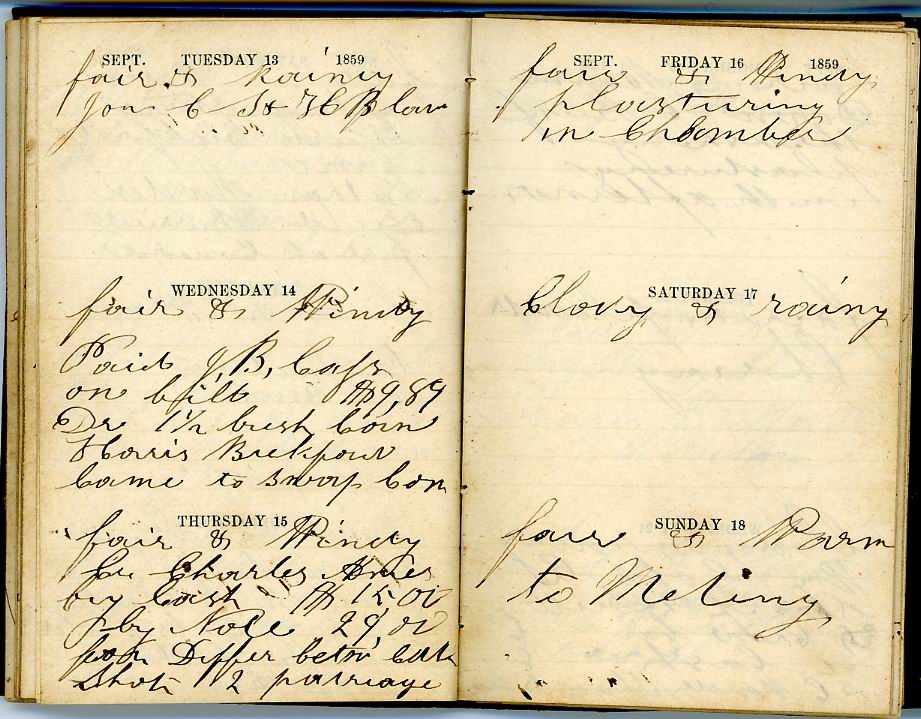 SEPT. TUESDAY 13 1859
fair & Rainy
Jon C S & H B Law
WEDNESDAY 14
fair & Windy
Paid J, B, Cass
on bill $9,89
Dr 1½ bush Corn
Harris Bickford
Came to swap Con
THURSDAY 15
fair & Windy
Cr Charles Ames
by Cash $15 00
by Note 29,00
for Differ betw Cattle
Shot 2 patriage
SEPT. FRIDAY 16 1859
fair & Windy
plasturing
in Chamber
SATURDAY 17
Clovy & rainy
SUNDAY 18
fair & Warm
to Meting